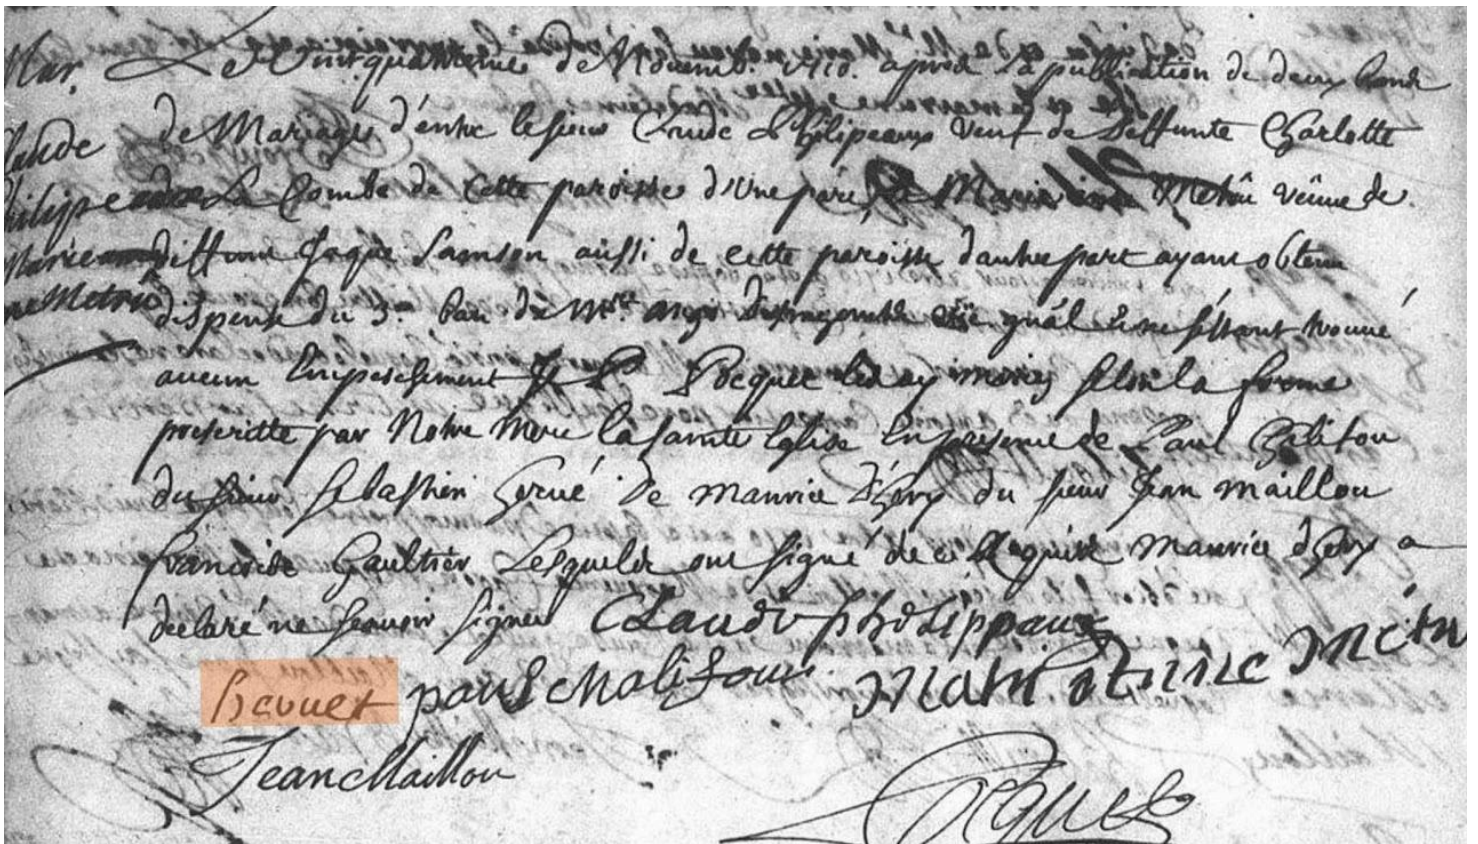 Mar. Le Vint quatrieme de Nouemb. 1710. apres la publication de deux bans
laude de Mariage d'entre le sieur Claude Philipeaux veuf de deffunte Charlotte
hilipe La Combe de cette paroisse d'une part, et Marie Metru veuue de
Marie anne deffunt Jaque Samson aussi de cette paroisse d'autre part ayant obtenu
ne Metru dispense du 3e. ban de Mre.
aucun Empeschement Je P Pocquet les ay mariez selon la forme
prescritte par Notre Mere la sainte Eglise En presence de Paul
du sieur Sebastien herué De Maurice d'hery du sieur Jean Maillou
francoise Gaultier Lesquels ont signé de ce Requis Maurice d'hery a
declaré ne scauoir signer Claude philippaux
heruet paul chalifour Mari Anne Metru
Jean Maillou
Pocquet